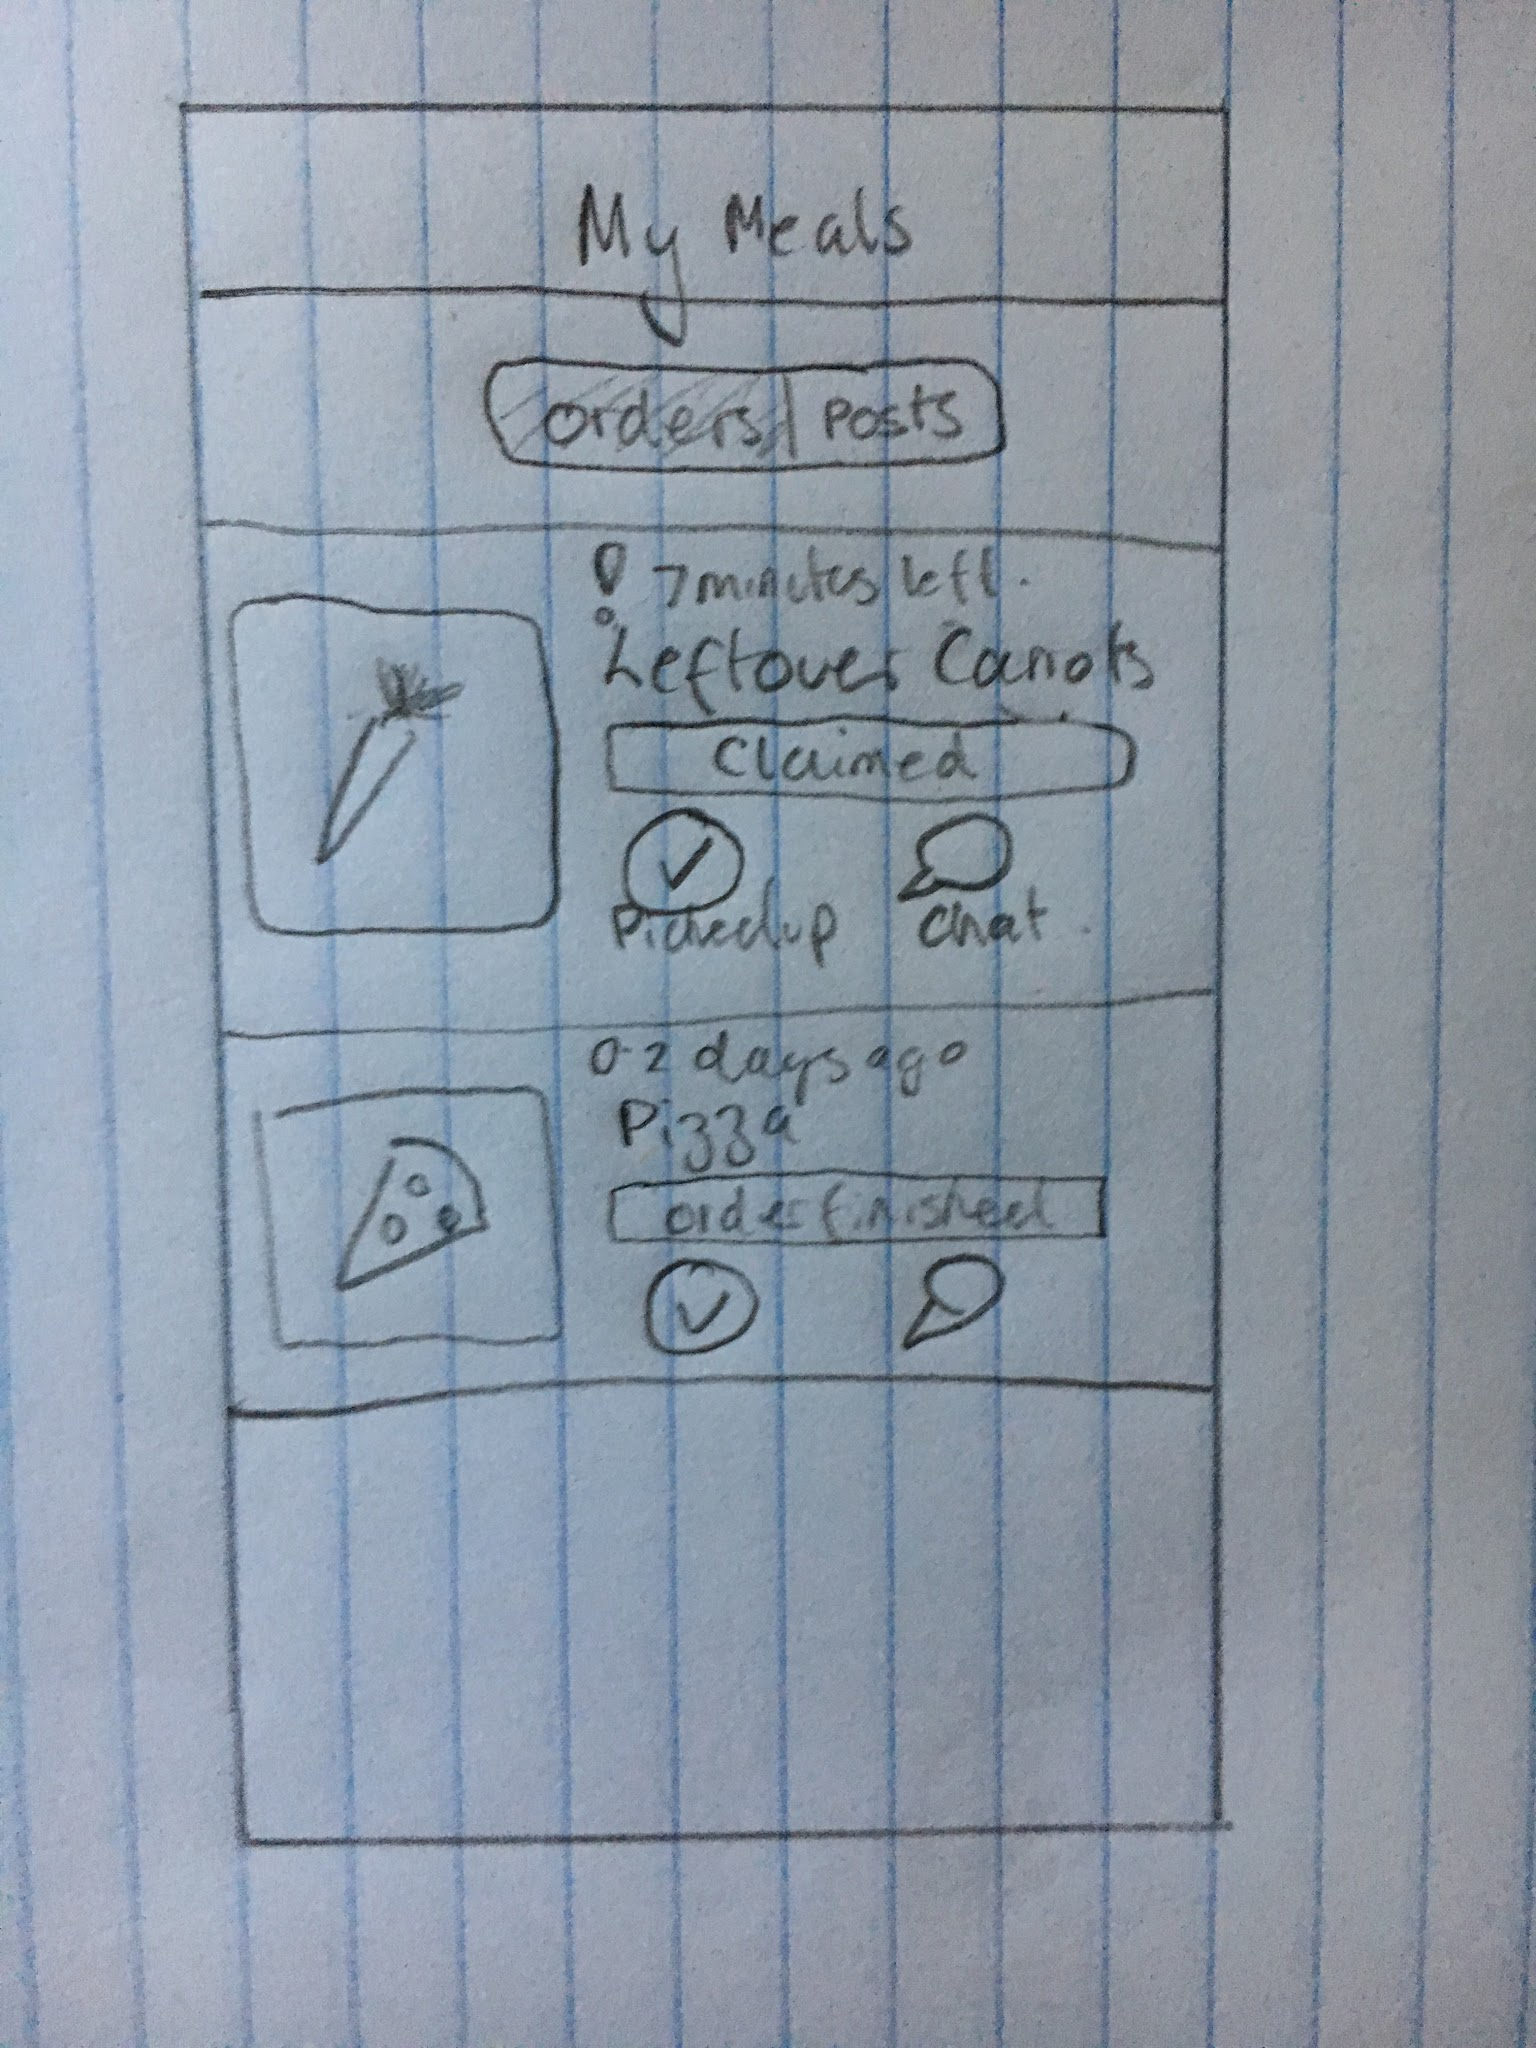 My Meals
orders | Posts
! 7 minutes left.
Leftover Carrots
Claimed
Pickedup Chat.
2 days ago
Pizza
order finished